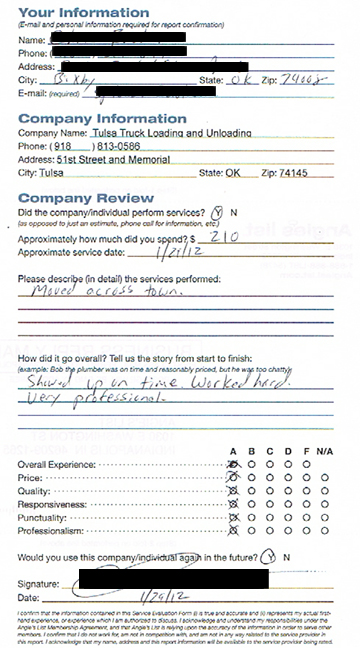 Your Information
(E-mail and personal information required for report confirmation)
Name:
Phone:
Address:
City: Bixby State: OK Zip: 74008
E-mail: (required)
Company Information
Company Name: Tulsa Truck Loading and Unloading
Phone: ( 918 ) 813-0586
Address: 51st Street and Memorial
City: Tulsa State: OK Zip: 74145
Company Review
Did the company/individual perform services? Y N
(as opposed to just an estimate, phone call for information, etc.)
Approximately how much did you spend? $ 210
Approximate service date: 1/29/12
Please describe (in detail) the services performed:
Moved across town.
How did it go overall? Tell us the story from start to finish:
(example: Bob the plumber was on time and reasonably priced, but he was too chatty)
Showed up on time. Worked hard.
Very professional.
A B C D F N/A
Overall Experience:
Price:
Quality:
Responsiveness:
Punctuality:
Professionalism:
Would you use this company/individual again in the future? Y N
Signature:
Date: 1/29/12
I confirm that the information contained in this Service Evaluation Form (i) is true and accurate and (ii) represents my actual first-
hand experience, or experience which I am authorized to discuss. I acknowledge and understand my responsibilities under the
Angie's List Membership Agreement, and that Angie's List is relying upon the accuracy of the information in order to serve other
members. I confirm that I do not work for, am not in competition with, and am not in any way related to the service provider in
this report. I acknowledge that my name, address and this report information will be available to the service provider being rated.